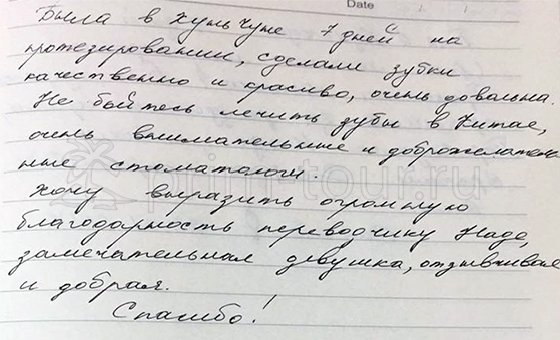 Date
Была в Хуньчуне 7 дней на
протезировании, сделали зубки
качественно и красиво, очень довольна.
Не бойтесь лечить зубы в Китае,
очень внимательные и доброжелатель
ные стоматологи.
prim-tour.ru
Хочу выразить огромную
благодарность переводчику Наде,
замечательная девушка, отзывчивая
и добрая.
Спасибо!